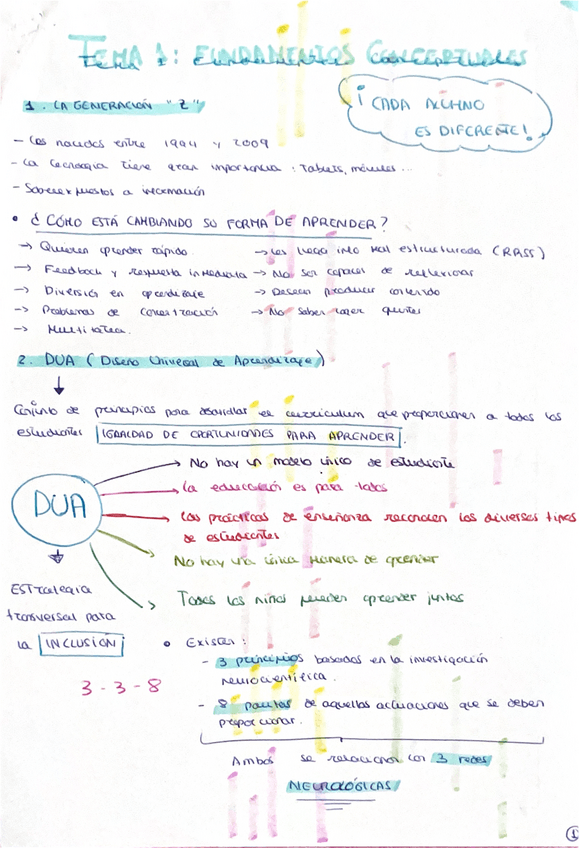 TEMA 1: FUNDAMENTOS CONCEPTUALES
1. LA GENERACIÓN "Z"
¡CADA ALUMNO
ES DIFERENTE!
- Los nacidos entre 1994 y 2009
- La tecnología tiene gran importancia: Tablets, móviles...
- Sobreexpuestos a información
• ¿CÓMO ESTÁ CAMBIANDO SU FORMA DE APRENDER?
→ Quieren aprender rápido
→ Les llega info mal estructurada (RRSS)
→ Feedback y respuesta inmediata
→ No ser capaces de reflexionar
→ Diversión en aprendizaje
→ Desean producir contenido
→ Problemas de concentración
→ No saber coger apuntes
→ Multitarea
2. DUA (Diseño Universal de Aprendizaje)
Conjunto de principios para desarrollar el currículum que proporcionen a todos los
estudiantes IGUALDAD DE OPORTUNIDADES PARA APRENDER.
DUA
→ No hay un modelo único de estudiante
→ La educación es para todos
→ Las prácticas de enseñanza reconocen los diversos tipos
de estudiantes
No hay una única manera de aprender
Todos los niños pueden aprender juntos
Estrategia
transversal para
la INCLUSIÓN
3-3-8
• Existen:
- 3 principios basados en la investigación
neurocientífica.
- 8 pautas de aquellas actuaciones que se deben
proporcionar.
Ambos se relacionan con 3 redes
NEUROLÓGICAS
1